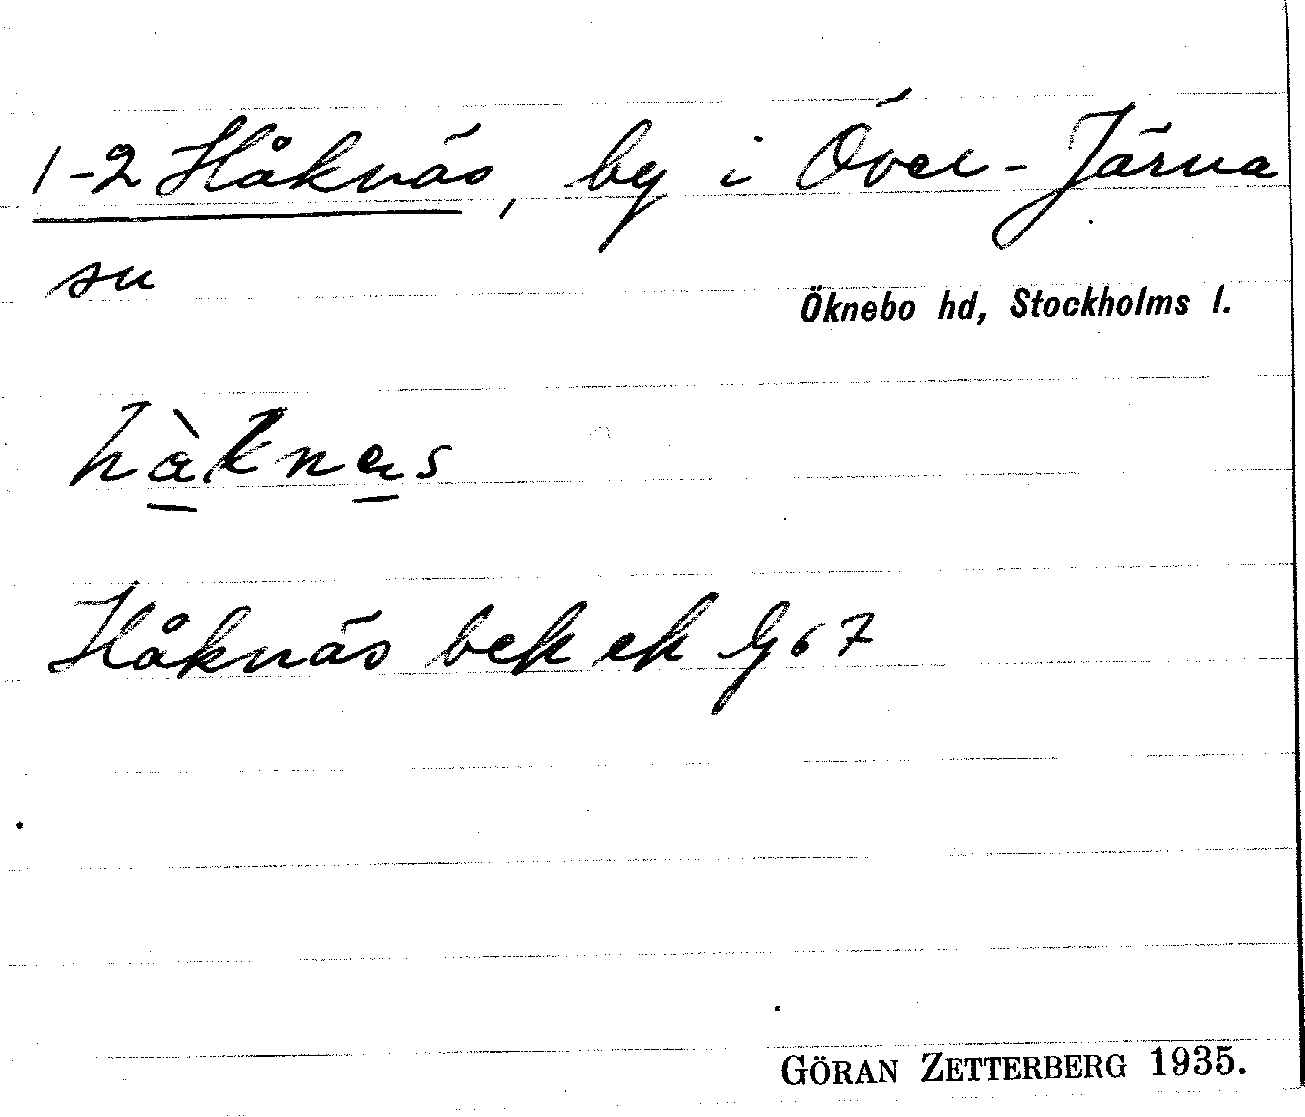 1-2 Håknäs, by i Över-Järna
sn
Öknebo hd, Stockholms l.
hàknas
Håknäs bek ek G 67
GÖRAN ZETTERBERG 1935.